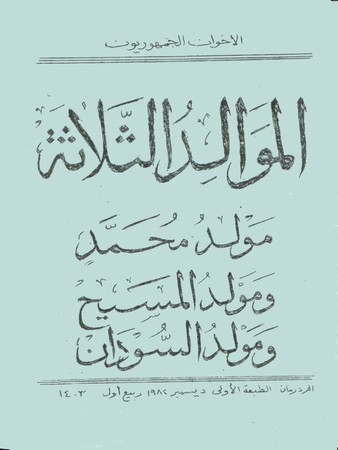 الاخوان الجمهوريون
الموَالِدُ الثَّلاثَة
مَوْلدُ محُمَّدٍ
وَمَولدُ المَسيحِ
وَمَولدُ السُّودَانِ
امدرمان الطبعة الأولى ديسمبر ١٩٨٢ ربيع أول ١٤٠٣